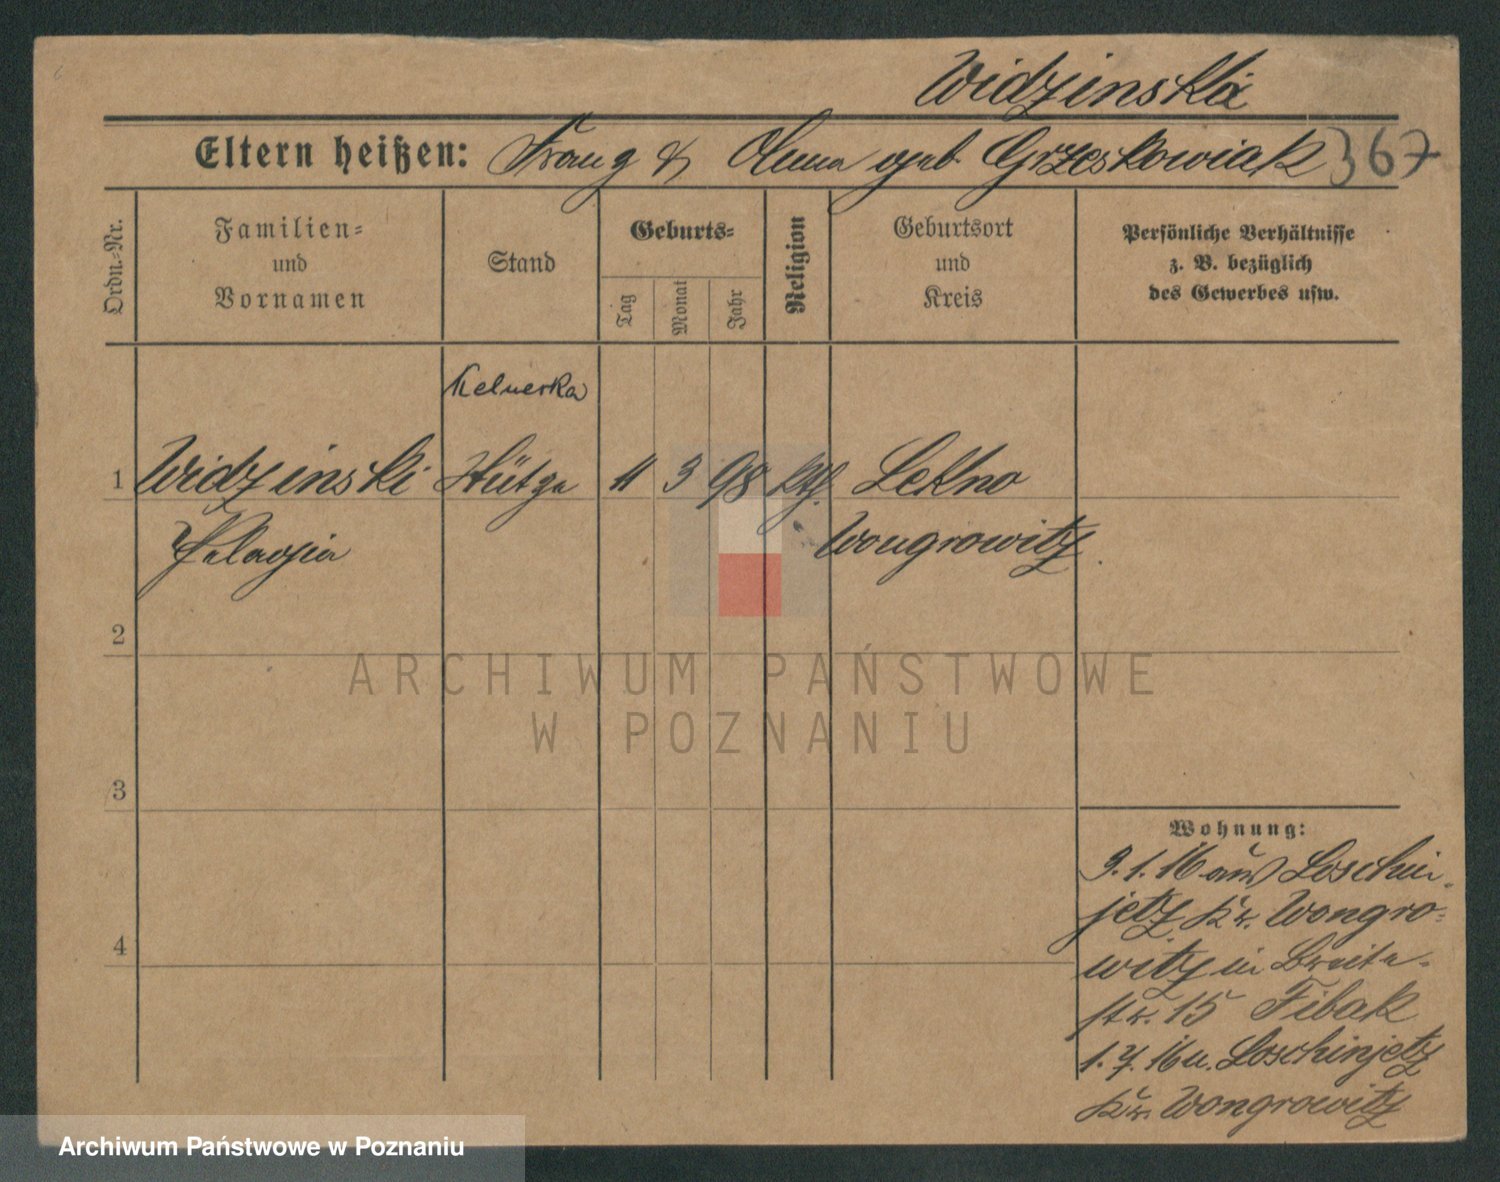 Widzinska
Eltern heißen: Franz & Anna geb. Grzeskowiak 367
Ordn.-Nr.
Familien-
und
Vornamen
Stand
Geburts-
Tag
Monat
Jahr
Religion
Geburtsort
und
Kreis
Persönliche Verhältnisse
z. B. bezüglich
des Gewerbes usw.
Kelnerka
1 Widzinski Stütze 11 3 98 kth. Lekno
Pelagia Wongrowitz.
2
3
4
Wohnung:
9.1.16 aus Loschin-
jetz Kr. Wongro-
witz in Breite-
str. 15 Fibak
1.7.16 n. Loschinjetz
Kr. Wongrowitz
ARCHIWUM PAŃSTWOWE
W POZNANIU
Archiwum Państwowe w Poznaniu